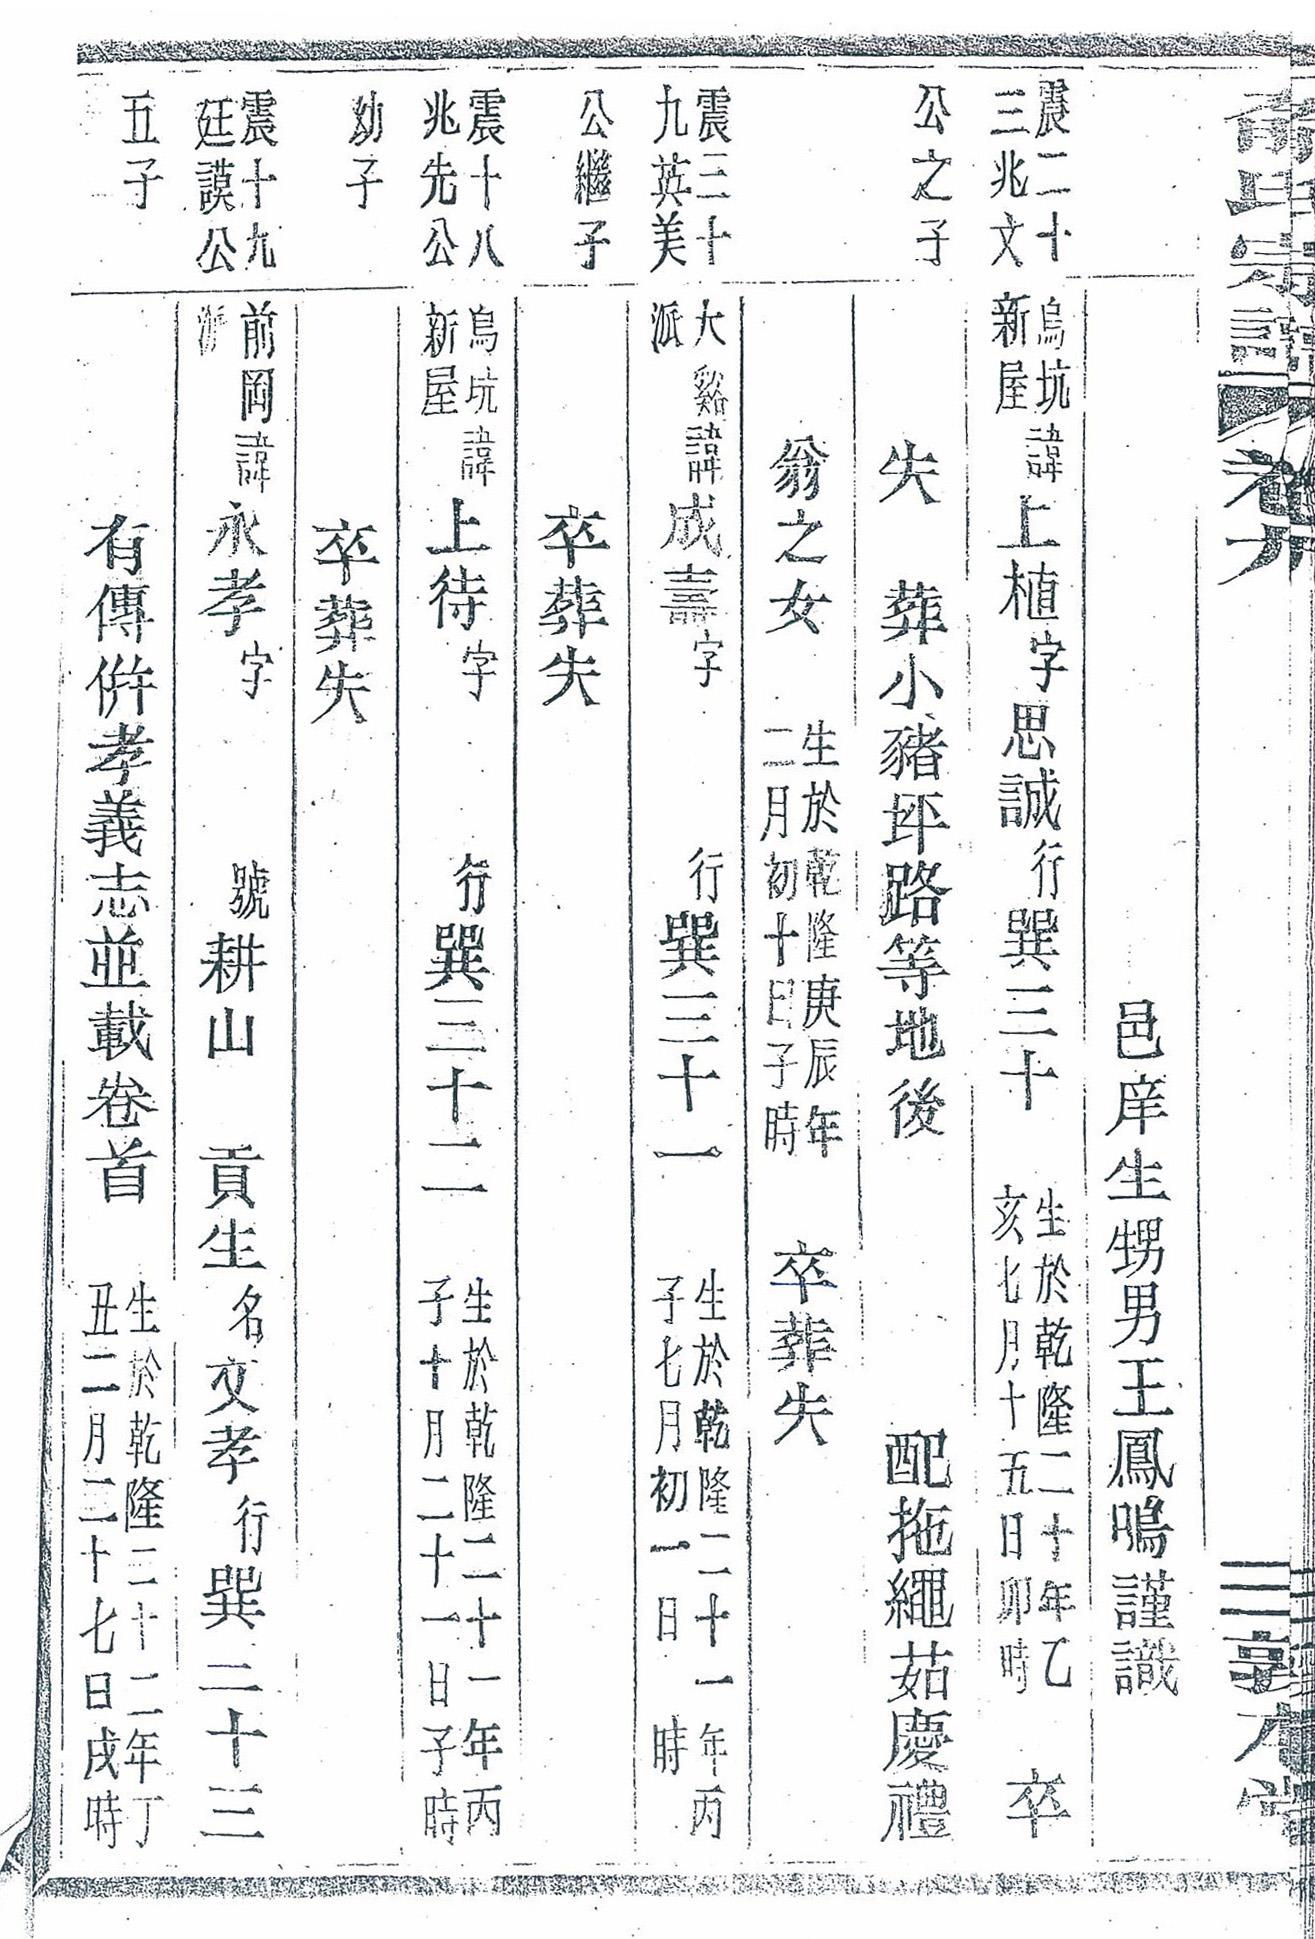 氏宗譜 卷 三 敦本堂
邑庠生甥男王鳳鳴謹識
震二十三兆文 烏坑新屋 諱上植字思誠行巽三十 生於乾隆二十年乙亥七月十五日卯時 卒
公之子 失 葬小豬坪路等地後 配拖繩茹慶禮
翁之女 生於乾隆庚辰年二月初十日子時 卒葬失
震三十九英美 大谿派 諱成壽字 行巽三十一 生於乾隆二十一年丙子七月初一日 時
公繼子 卒葬失
震十八兆先公 烏坑新屋 諱上待字 行巽三十二 生於乾隆二十一年丙子十月二十一日子時
幼子 卒葬失
震十九廷謨公 前岡派 諱永孝字 號耕山 貢生名文孝行巽三十三
五子 有傳併孝義志並載卷首 生於乾隆二十二年丁丑二月二十七日戌時